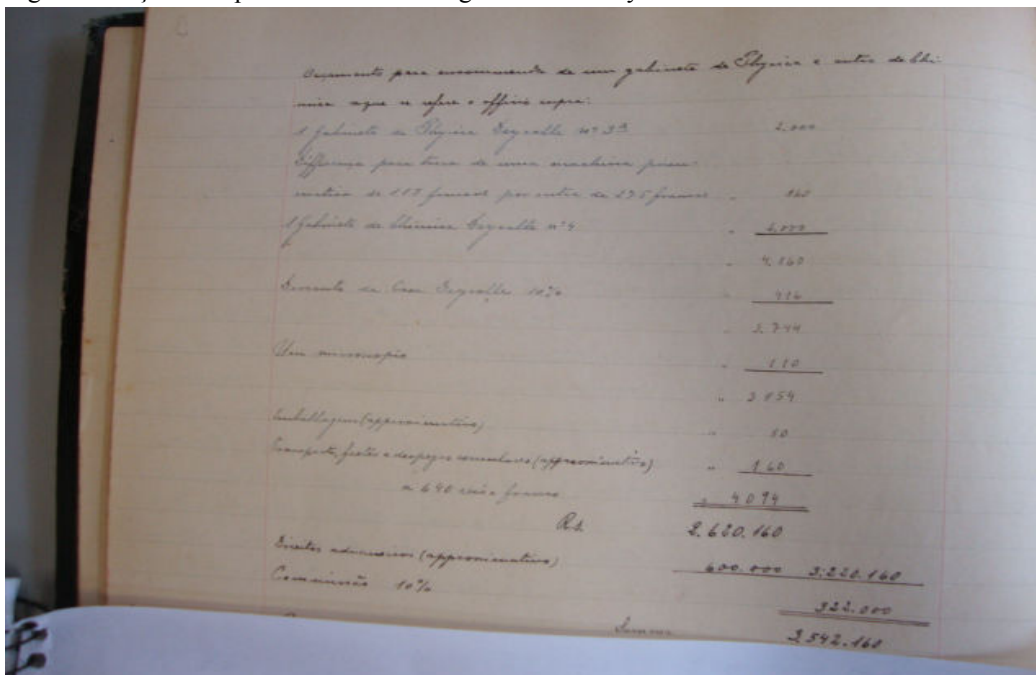 Orçamento para encommenda de um gabinete de Physica e outro de Chi-
mica a que se refere o officio supra:
1 Gabinete de Physica Deyrolle nº 3ª 2.000
Differença para troca de uma machina pneu-
matica de 117 francos por outra de 275 francos " 160
1 Gabinete de Chimica Deyrolle nº 4 " 2.000
" 4.160
Desconto da Casa Deyrolle 10% " 416
" 3.744
Um microscopio " 110
" 3.854
Emballagem (approximativo) " 80
Transporte, fretes e despezas consulares (approximativo) " 160
a 640 reis o franco " 4094
Rs. 2.620.160
Direitos aduaneiros (approximativo) 600.000 3.220.160
Commissão 10% 322.000
Somma 3.542.160